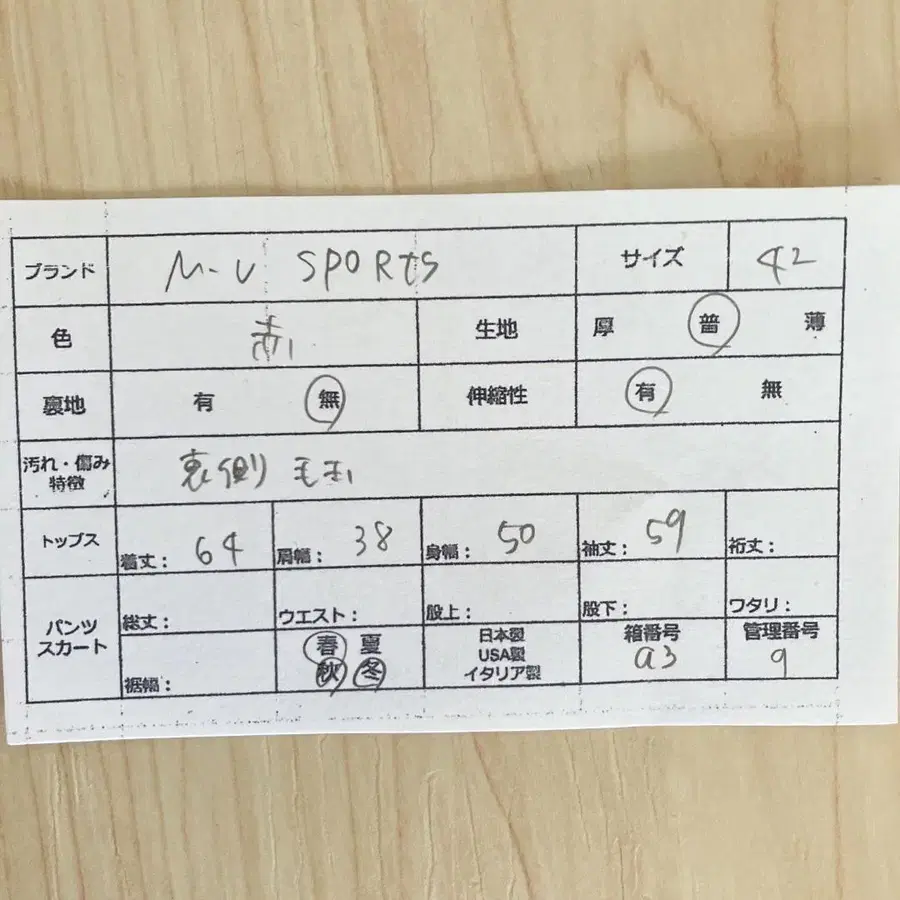 ブランド M-U SPORTS サイズ 42
色 赤 生地 厚 普 薄
裏地 有 無 伸縮性 有 無
汚れ・傷み
特徴 裏側 毛玉
トップス 着丈: 64 肩幅: 38 身幅: 50 袖丈: 59 裄丈:
パンツ
スカート
総丈: ウエスト: 股上: 股下: ワタリ:
裾幅:
春 夏
秋 冬
日本製
USA製
イタリア製
箱番号
a3
管理番号
9